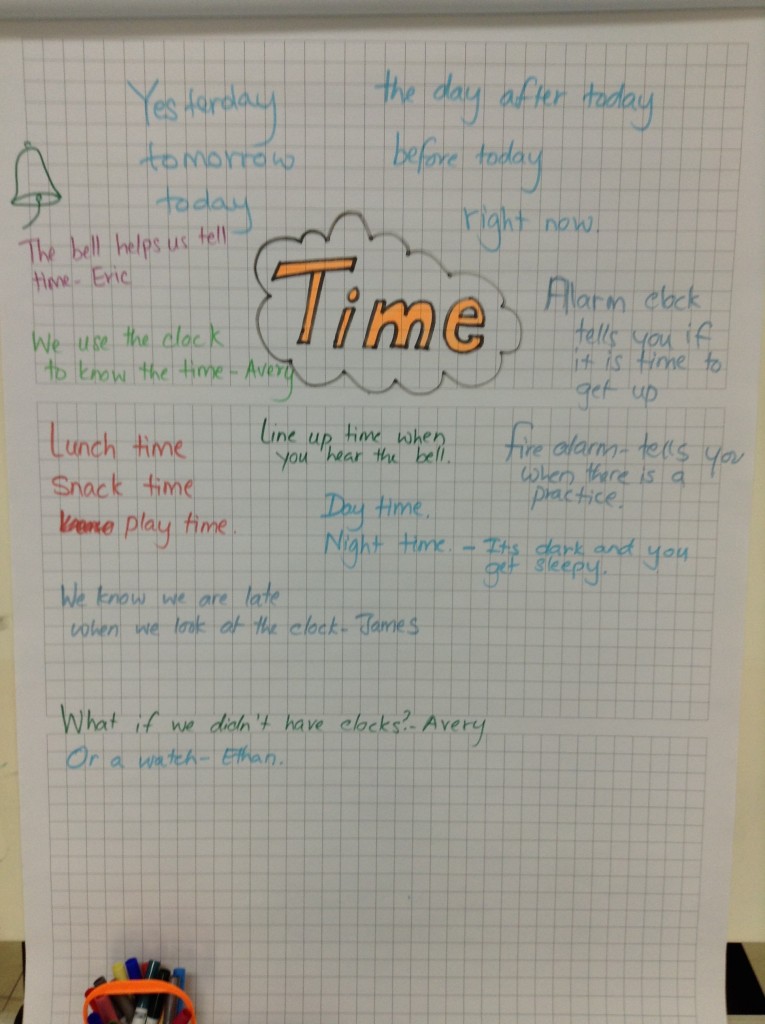 Yesterday
tomorrow
today
the day after today
before today
right now.
The bell helps us tell
time - Eric
Time
We use the clock
to know the time - Avery
Alarm clock
tells you if
it is time to
get up
Lunch time
Snack time
play time.
Line up time when
you hear the bell.
fire alarm - tells you
when there is a
practice.
Day time.
Night time. - Its dark and you
get sleepy.
We know we are late
when we look at the clock - James
What if we didn't have clocks? - Avery
Or a watch - Ethan.